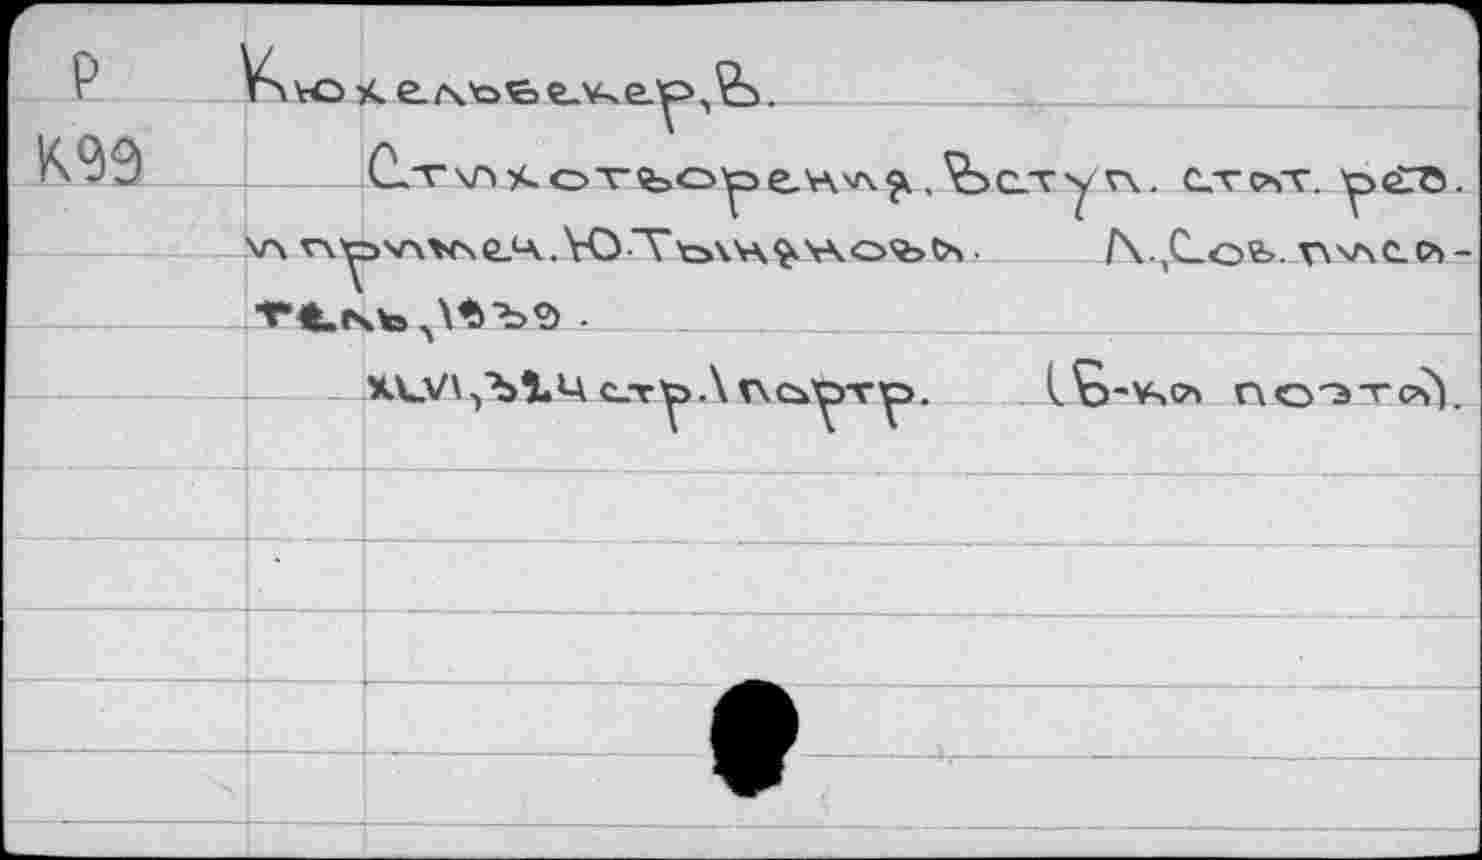 Р Кюхельбекер, В.
К99 Стихотворения. Вступ. стат. ред.
и примеч. Ю. Тынянова. Л., Сов. писа-
тель, 1939.
XLVI, 324 стр. 1 портр. (Б-ка поэта).